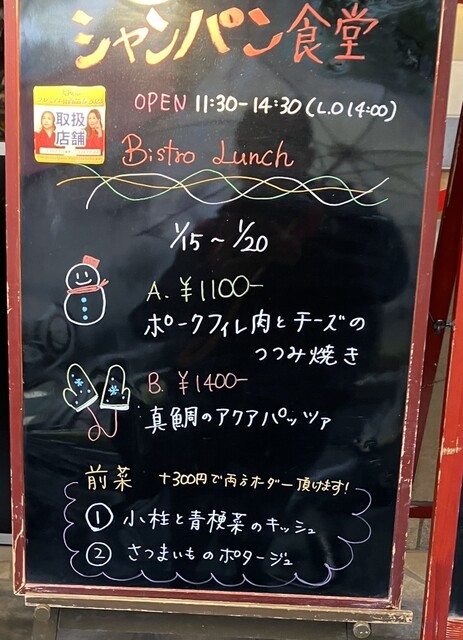 シャンパン食堂
OPEN 11:30-14:30 (L.O 14:00)
取扱
店舗
Bistro Lunch
1/15～1/20
A. ¥1100-
ポークフィレ肉とチーズの
つつみ焼き
B. ¥1400-
真鯛のアクアパッツァ
前菜 +300円で両方オーダー頂けます!
① 小柱と青梗菜のキッシュ
② さつまいものポタージュ